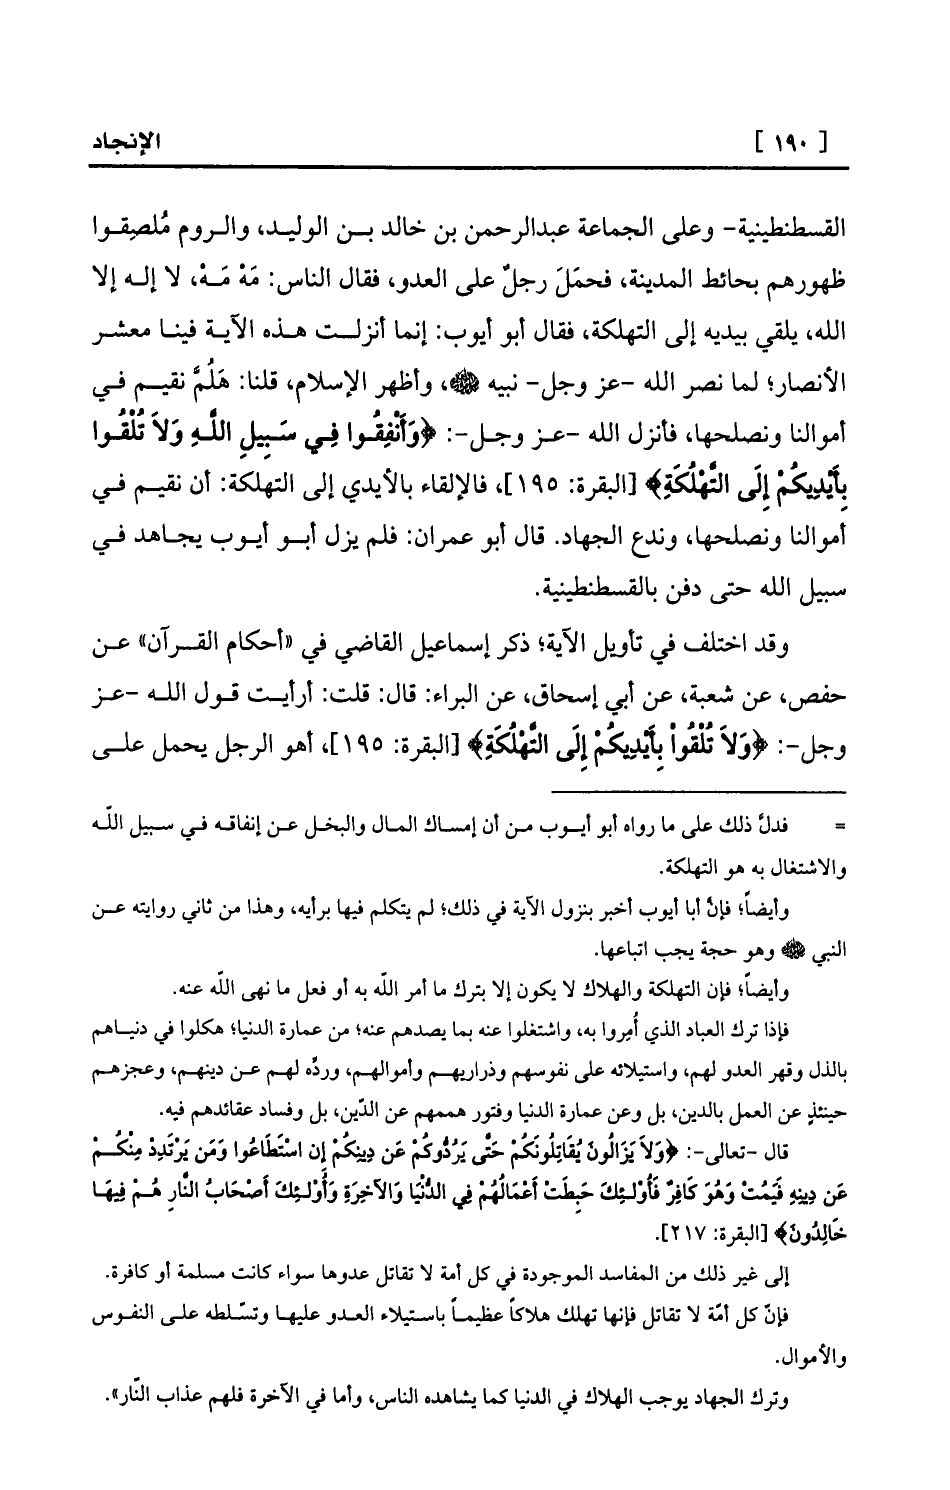 [ ١٩٠ ] الإنجاد
القسطنطينية- وعلى الجماعة عبدالرحمن بن خالد بـن الوليد، والـروم مُلصِقـوا
ظهورهم بحائط المدينة، فحمَلَ رجلٌ على العدو، فقال الناس: مَهْ مَـهْ، لا إلـه إلا
الله، يلقي بيديه إلى التهلكة، فقال أبو أيوب: إنما أنزلـت هـذه الآية فينـا معشـر
الأنصار؛ لما نصر الله -عز وجل- نبيه ﷺ، وأظهر الإسلام، قلنا: هَلُمَّ نقيـم فـي
أموالنا ونصلحها، فأنزل الله -عـز وجـل-: ﴿وَأَنْفِقُوا فِي سَبِيلِ اللَّهِ وَلاَ تُلْقُوا
بِأَيْدِيكُمْ إِلَى التَّهْلُكَةِ﴾ [البقرة: ١٩٥]، فالإلقاء بالأيدي إلى التهلكة: أن نقيـم فـي
أموالنا ونصلحها، وندع الجهاد. قال أبو عمران: فلم يزل أبـو أيـوب يجـاهد فـي
سبيل الله حتى دفن بالقسطنطينية.
وقد اختلف في تأويل الآية؛ ذكر إسماعيل القاضي في «أحكام القـرآن» عـن
حفص، عن شعبة، عن أبي إسحاق، عن البراء: قال: قلت: أرأيـت قـول اللـه -عـز
وجل-: ﴿وَلاَ تُلْقُواْ بِأَيْدِيكُمْ إِلَى التَّهْلُكَةِ﴾ [البقرة: ١٩٥]، أهو الرجل يحمل علـى
= فدلَّ ذلك على ما رواه أبو أيـوب مـن أن إمسـاك المـال والبخـل عـن إنفاقـه فـي سـبيل اللّـه
والاشتغال به هو التهلكة.
وأيضاً؛ فإنَّ أبا أيوب أخبر بنزول الآية في ذلك؛ لم يتكلم فيها برأيه، وهذا من ثاني روايته عـن
النبي ﷺ وهو حجة يجب اتباعها.
وأيضاً؛ فإن التهلكة والهلاك لا يكون إلا بترك ما أمر اللّه به أو فعل ما نهى اللّه عنه.
فإذا ترك العباد الذي أُمِروا به، واشتغلوا عنه بما يصدهم عنه؛ من عمارة الدنيا؛ هكلوا في دنيـاهم
بالذل وقهر العدو لهم، واستيلائه على نفوسهم وذراريهـم وأموالهـم، وردِّه لهـم عـن دينهـم، وعجزهـم
حينئذٍ عن العمل بالدين، بل وعن عمارة الدنيا وفتور هممهم عن الدّين، بل وفساد عقائدهم فيه.
قال -تعالى-: ﴿وَلاَ يَزَالُونَ يُقَاتِلُونَكُمْ حَتَّى يَرُدُّوكُمْ عَن دِينِكُمْ إِن اسْتَطَاعُوا وَمَن يَرْتَدِدْ مِنْكُـمْ
عَن دِينِهِ فَيَمُتْ وَهُوَ كَافِرٌ فَأُوْلَـئِكَ حَبِطَتْ أَعْمَالُهُمْ فِي الدُّنْيَا وَالآخِرَةِ وَأُوْلَـئِكَ أَصْحَابُ النَّارِ هُـمْ فِيهَـا
خَالِدُونَ﴾ [البقرة: ٢١٧].
إلى غير ذلك من المفاسد الموجودة في كل أمة لا تقاتل عدوها سواء كانت مسلمة أو كافرة.
فإنّ كل أمّة لا تقاتل فإنها تهلك هلاكاً عظيمـاً باسـتيلاء العـدو عليهـا وتسّـلطه علـى النفـوس
والأموال.
وترك الجهاد يوجب الهلاك في الدنيا كما يشاهده الناس، وأما في الآخرة فلهم عذاب النّار».